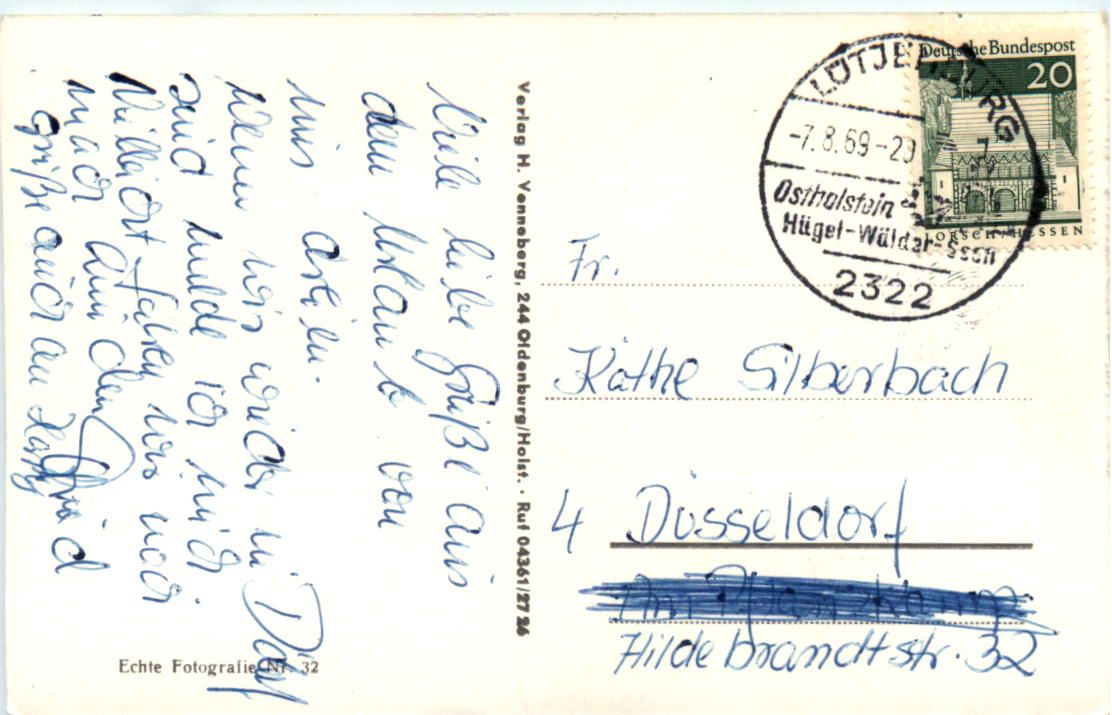 Viele liebe Grüße aus
dem Urlaub von
uns allen.
Wenn wir wieder in Ddorf
sind melde ich mich
fahren wir noch
nach
Grüße auch an
Echte Fotografie Nr. 32
Verlag H. Venneberg, 244 Oldenburg/Holst. · Ruf 04361/2724
Deutsche Bundespost
20
LORSCH/HESSEN
LÜTJENBURG
-7.8.69-20
Ostholstein
Hügel-Wälder-Seen
2322
Fr.
Käthe Silberbach
4 Düsseldorf
Hildebrandtstr. 32